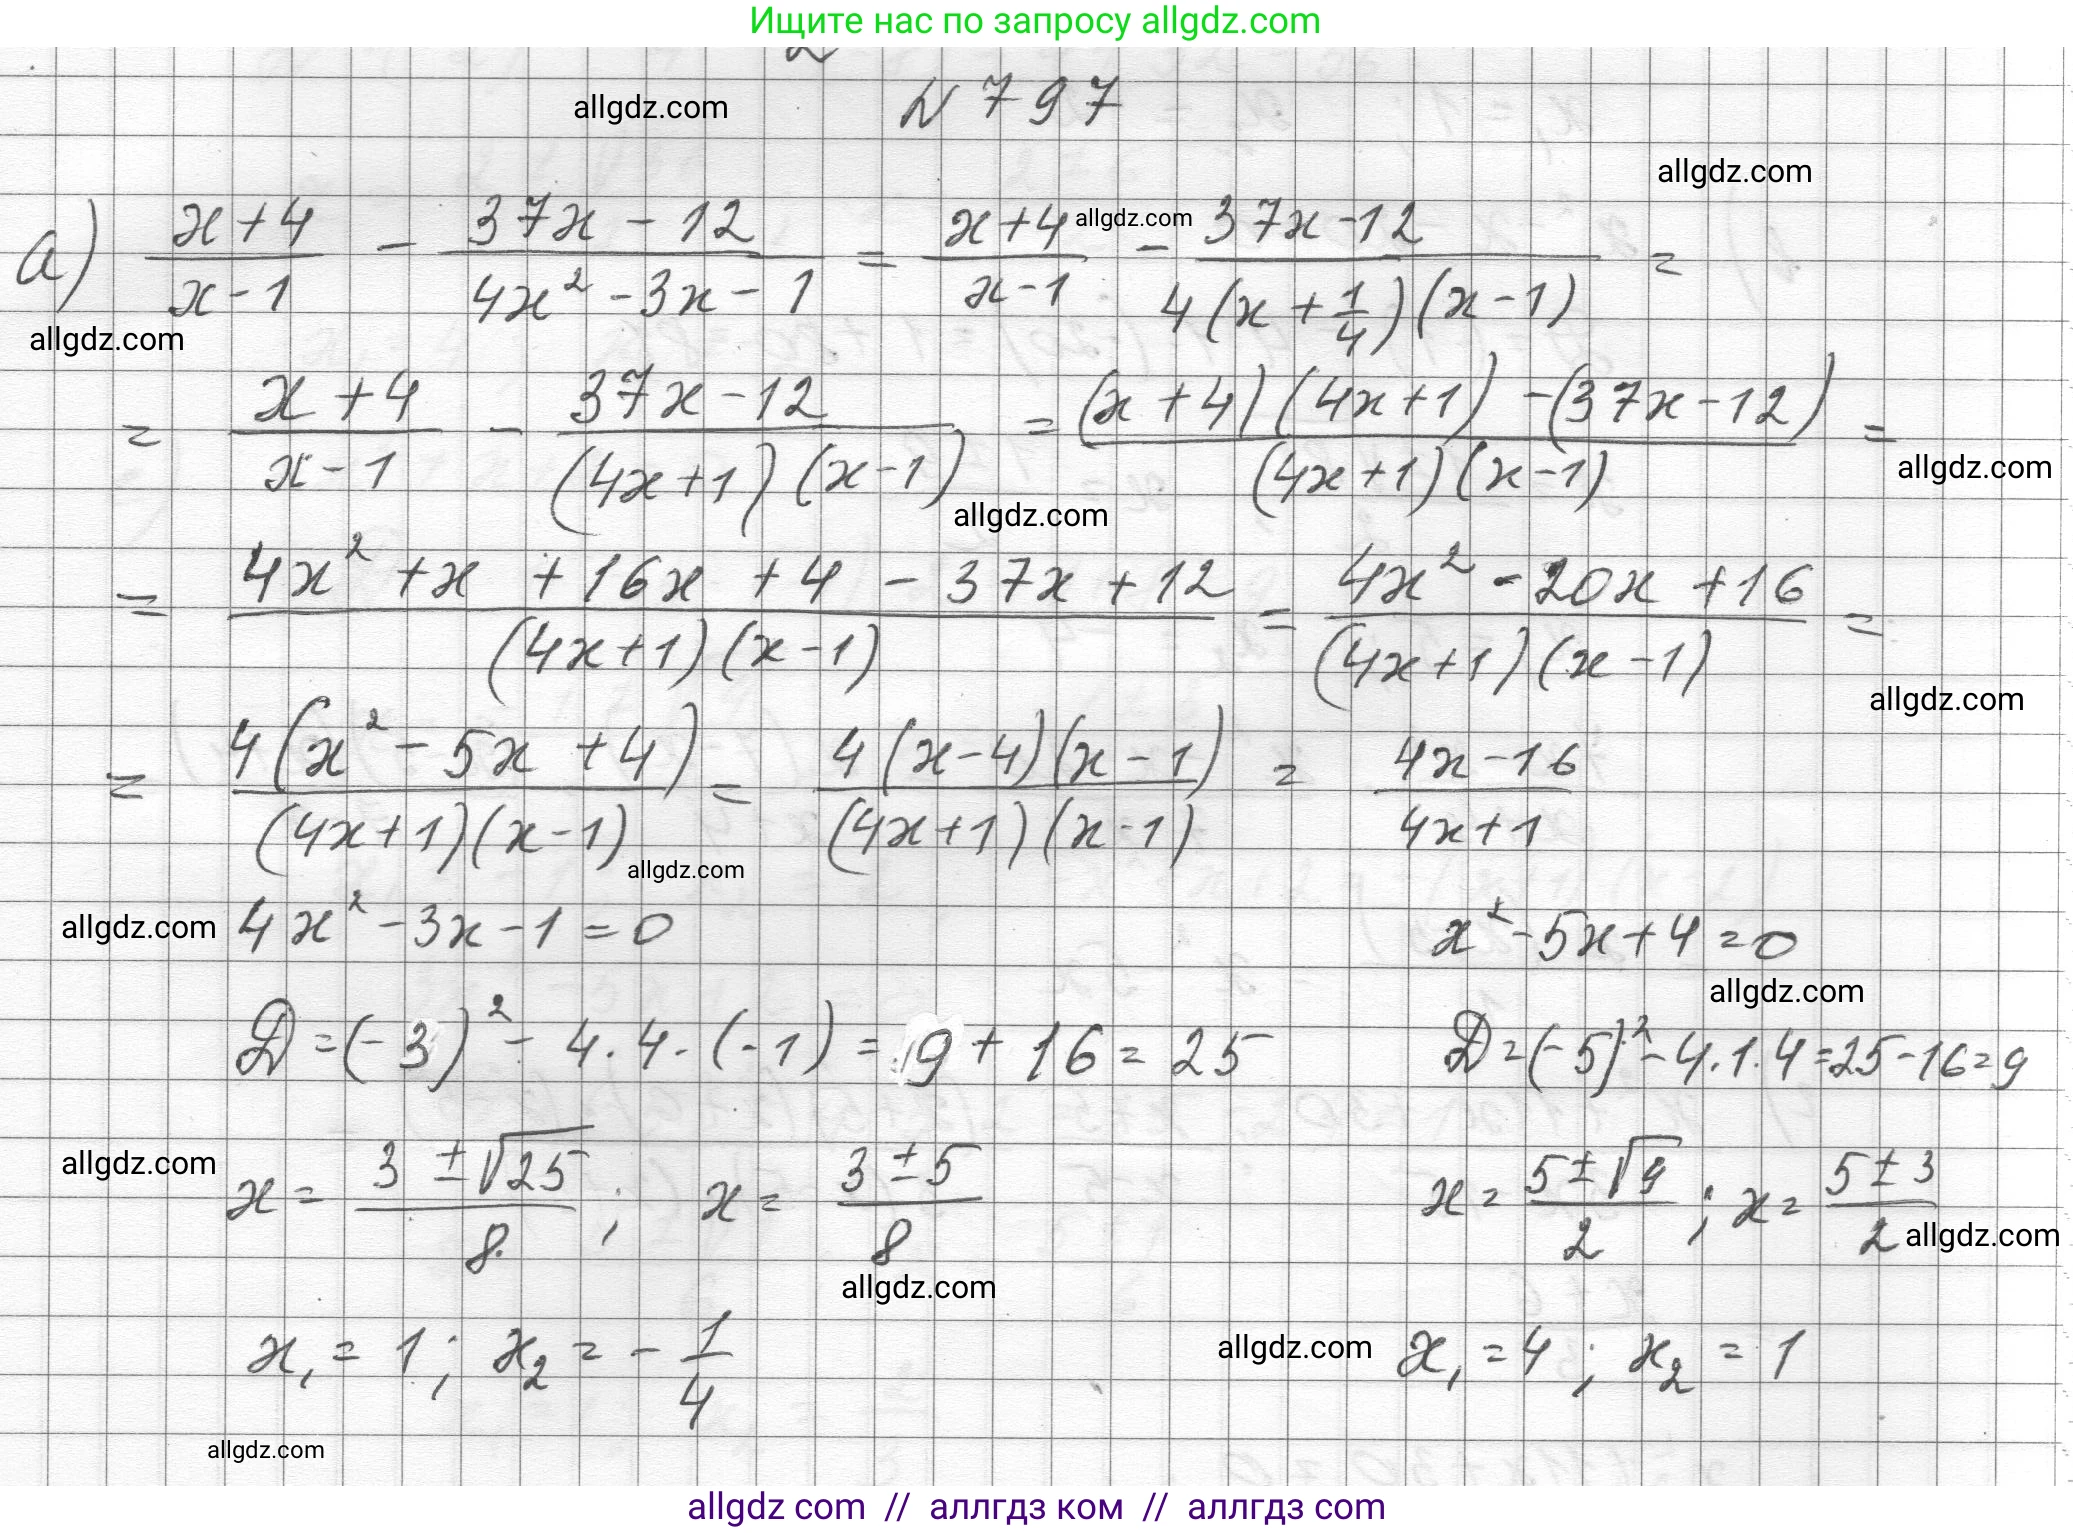 Ищите нас по запросу allgdz.com
N 797
allgdz.com
allgdz.com
а) (x+4)/(x-1) - (37x-12)/(4x²-3x-1) = (x+4)/(x-1) - (37x-12)/(4(x+1/4)(x-1)) =
allgdz.com
allgdz.com
= (x+4)/(x-1) - (37x-12)/((4x+1)(x-1)) = ((x+4)(4x+1)-(37x-12))/((4x+1)(x-1)) =
allgdz.com
allgdz.com
= (4x²+x+16x+4-37x+12)/((4x+1)(x-1)) = (4x²-20x+16)/((4x+1)(x-1)) =
allgdz.com
= (4(x²-5x+4))/((4x+1)(x-1)) = (4(x-4)(x-1))/((4x+1)(x-1)) = (4x-16)/(4x+1)
allgdz.com
allgdz.com
4x²-3x-1=0 x²-5x+4=0
allgdz.com
D=(-3)²-4·4·(-1)=9+16=25 D=(-5)²-4·1·4=25-16=9
allgdz.com
x=(3±√25)/8; x=(3±5)/8 x=(5±√9)/2; x=(5±3)/2
allgdz.com
allgdz.com
x₁=1; x₂=-1/4 allgdz.com x₁=4; x₂=1
allgdz.com
allgdz com // аллгдз ком // аллгдз com